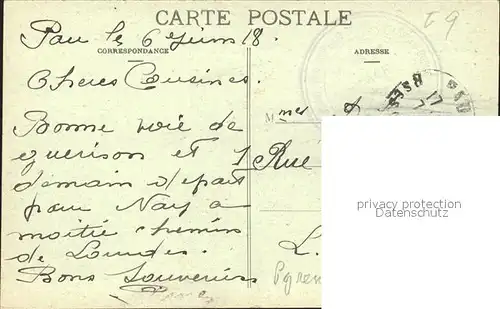 CARTE POSTALE
Pau le 6 Juin 18.
CORRESPONDANCE
ADRESSE
Cheres Cousines.
Mmes
Bonne voie de
guerison et
1 Rue
demain depart
pour Nay a
moitie chemin
de Lourdes.
L.
Bons Souvenirs
privacy protection
Datenschutz